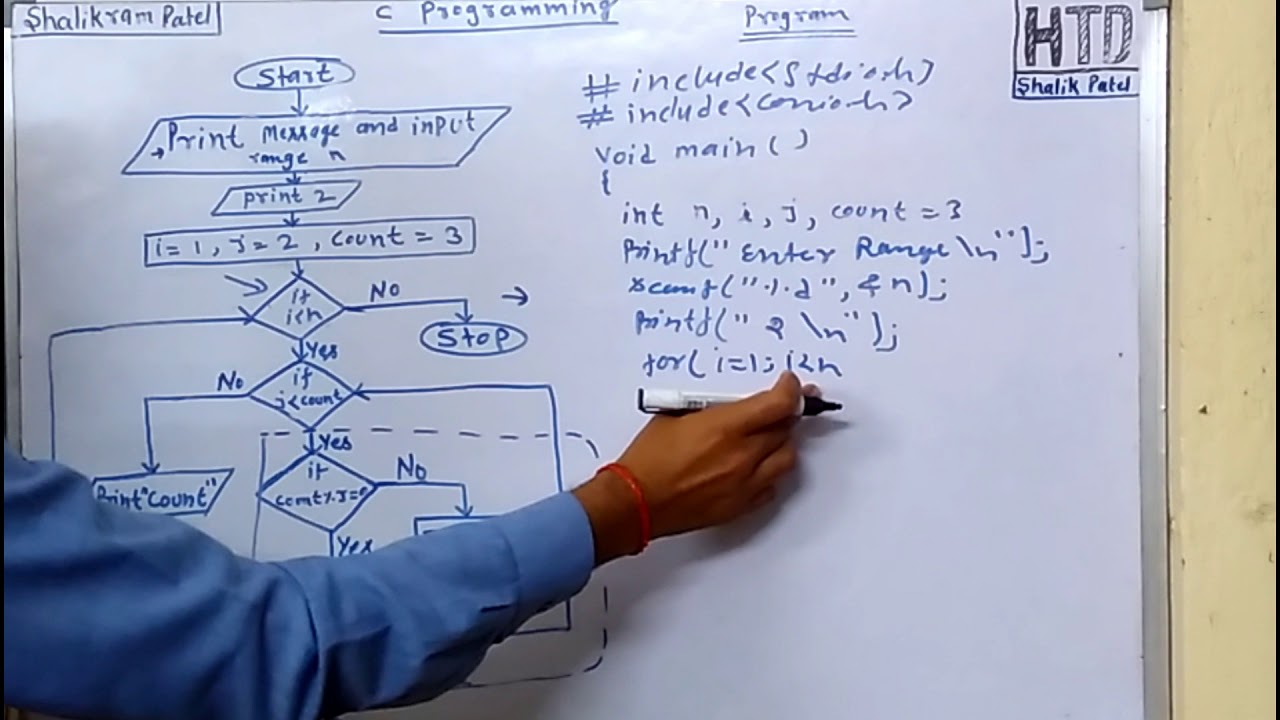 Shalikram Patel
C Programming
Program
HTD
Shalik Patel
Start
Print Message and input
range n
print 2
i = 1, j = 2, count = 3
if
i<n
No
Stop
Yes
if
j<count
No
Yes
Print "Count"
if
No
Yes
# include<Stdio.h>
# include<conio.h>
void main ( )
{
int n, i, j, count = 3
Printf(" Enter Range \n");
scanf("%d", &n);
Printf(" 2 \n");
for( i=1; i<n